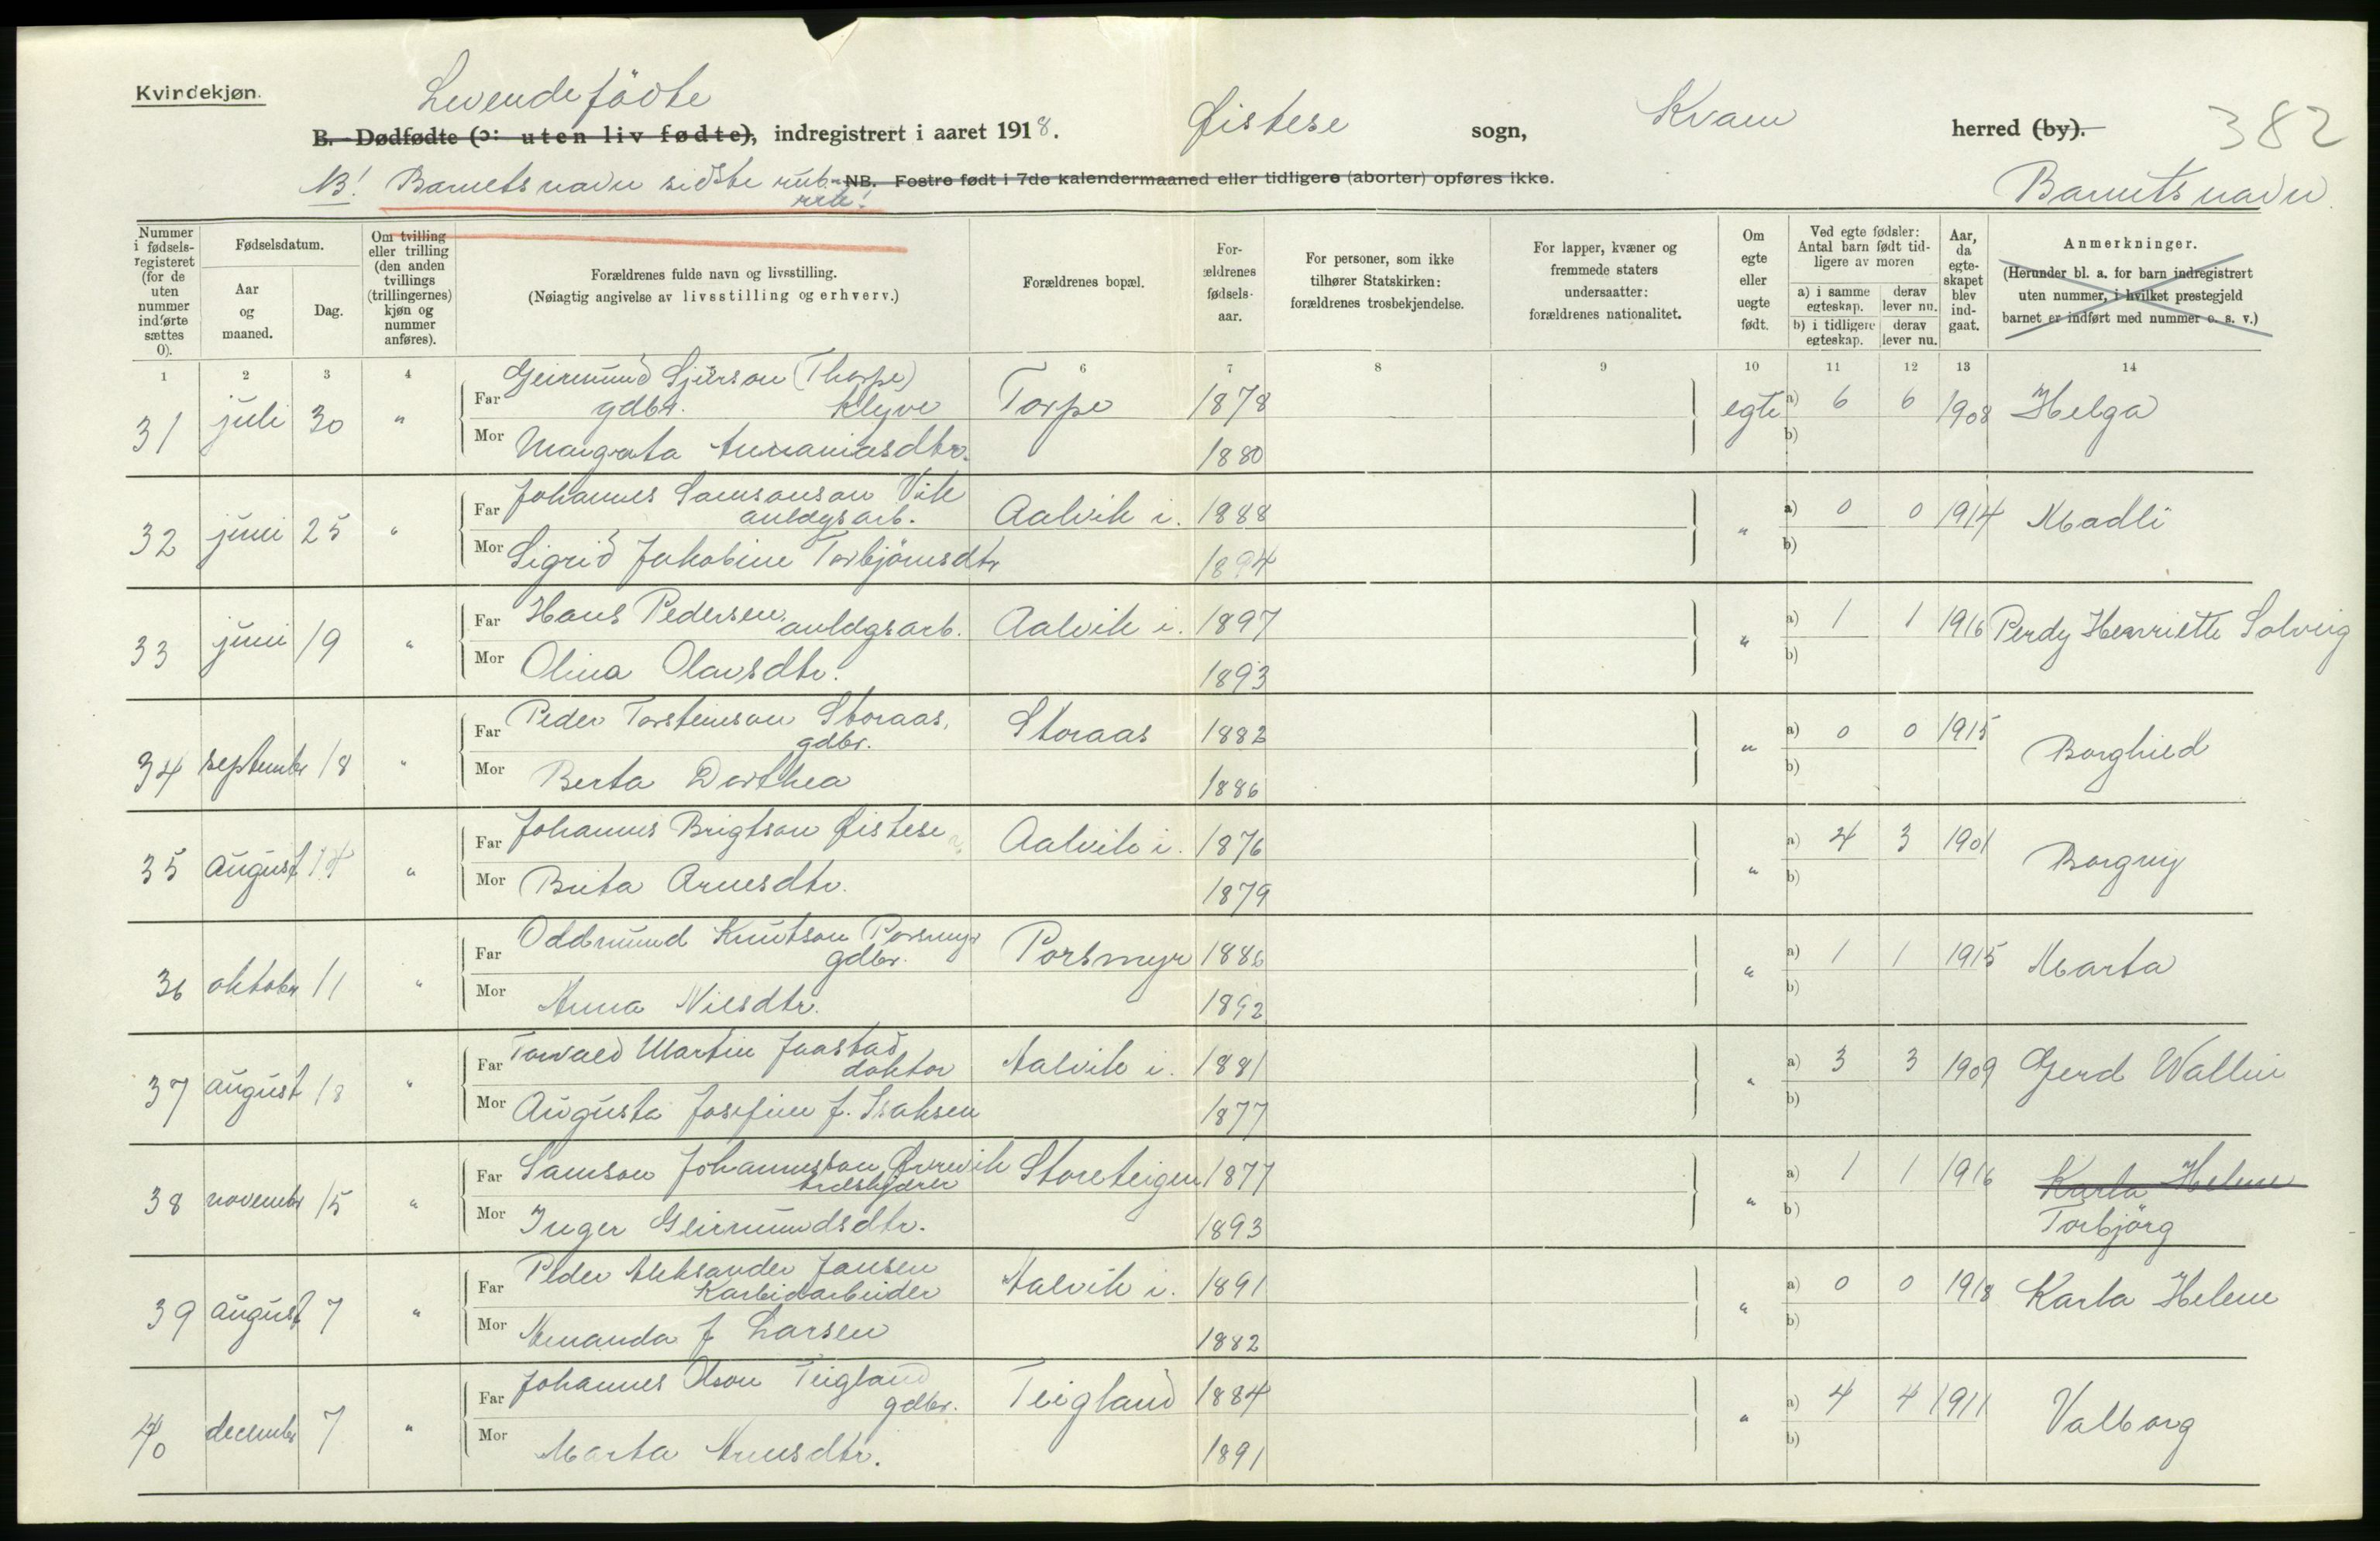 Kvindekjøn.
Levende fødte
B. Dødfødte (ɔ: uten liv fødte), indregistrert i aaret 1918. Øistese sogn, Kvam herred (by). 382
NB! Barnets navn sidste rub- NB. Fostre født i 7de kalendermaaned eller tidligere (aborter) opføres ikke. Barnets navn
Nummer i fødsels-registeret (for de uten nummer indførte sættes 0).
Fødselsdatum.
Aar og maaned.
Dag.
Om tvilling eller trilling (den anden tvillings (trillingernes) kjøn og nummer anføres).
Forældrenes fulde navn og livsstilling.
(Nøiagtig angivelse av livsstilling og erhverv.)
Forældrenes bopæl.
For-ældrenes fødsels-aar.
For personer, som ikke tilhører Statskirken: forældrenes trosbekjendelse.
For lapper, kvæner og fremmede staters undersaatter: forældrenes nationalitet.
Om egte eller uegte født.
Ved egte fødsler: Antal barn født tid-ligere av moren
a) i samme egteskap. derav lever nu.
b) i tidligere egteskap. derav lever nu.
Aar, da egte-skapet blev ind-gaat.
Anmerkninger.
(Herunder bl. a. for barn indregistrert uten nummer, i hvilket prestegjeld barnet er indført med nummer o. s. v.)
1 2 3 4 6 7 8 9 10 11 12 13 14
Geirmund Sjurson (Thorpe)
31 juli 30 " Far gdbr. Klyve Torpe 1878 egte a) 6 6 1908 Helga
Mor Margrata Ananiasdtr. 1880 b)
Johannes Samsonson Vik
32 juni 25 " Far anldgsarb. Aalvik i. 1888 " a) 0 0 1914 Madli
Mor Sigrid Jakobine Torbjörnsdtr 1894 b)
33 juni 19 " Far Hans Pedersen, anldgsarb. Aalvik i. 1897 " a) 1 1 1916 Perdy Henriette Solveig
Mor Olina Olavsdtr. 1893 b)
Peder Torsteinson Storaas,
34 septembr 18 " Far gdbr. Storaas 1882 " a) 0 0 1915 Borghild
Mor Berta Dorthea 1886 b)
35 august 14 " Far Johannes Brigtson Øistese Aalvik i. 1876 " a) 4 3 1901 Borgny
Mor Brita Arnesdtr. 1879 b)
Oddmund Knutson Porsmyr
36 oktobr 11 " Far gdbr. Porsmyr 1886 " a) 1 1 1915 Marta
Mor Anna Nilsdtr. 1892 b)
Torvald Martin Jaastad
37 august 18 " Far doktor Aalvik i. 1881 " a) 3 3 1909 Gjerd Wallin
Mor Augusta Josefine J. Isaksen 1877 b)
Samson Johannesson Øvrevik
38 novembr 15 " Far Storeteigen 1877 " a) 1 1 1916 Karla Helene
Mor Inger Geirmundsdtr. 1893 b) Torbjörg
Peder Aleksander Jansen
39 august 7 " Far Karbidarbeider Aalvik i. 1891 " a) 0 0 1918 Karla Helene
Mor Amanda J. Larsen 1882 b)
Johannes Olson Teigland
40 decembr 7 " Far gdbr. Teigland 1884 " a) 4 4 1911 Valborg
Mor Marta Arnesdtr. 1891 b)